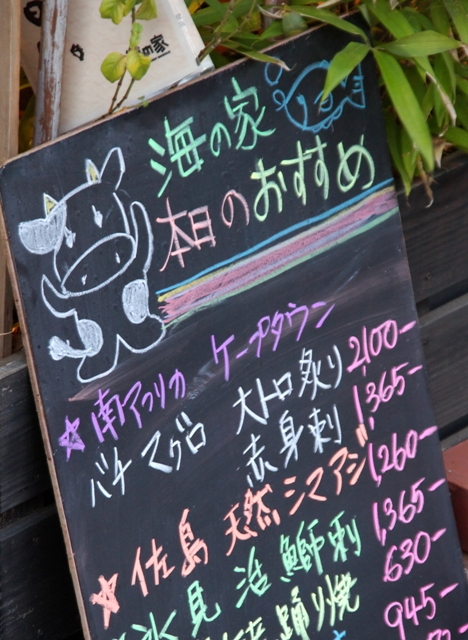 の家
海の家
本日の おすすめ
★南アフリカ ケープタウン
バチマグロ 大トロ炙り 2,100-
赤身刺 1,365-
★佐島 天然シマアジ 1,260-
氷見 活 鰤刺 1,365-
踊り焼 630-
945-